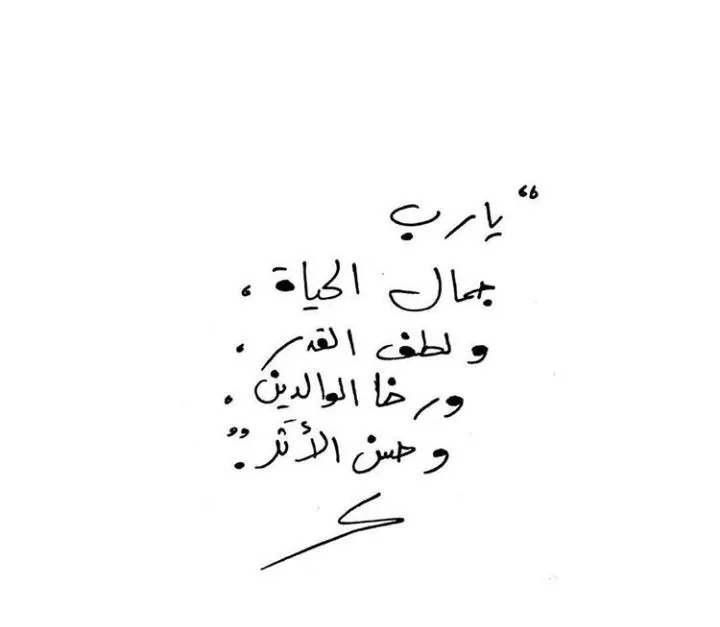 “يارب
جمال الحياة ،
و لطف القدر ،
ورضا الوالدين ،
و حسن الأثر .”